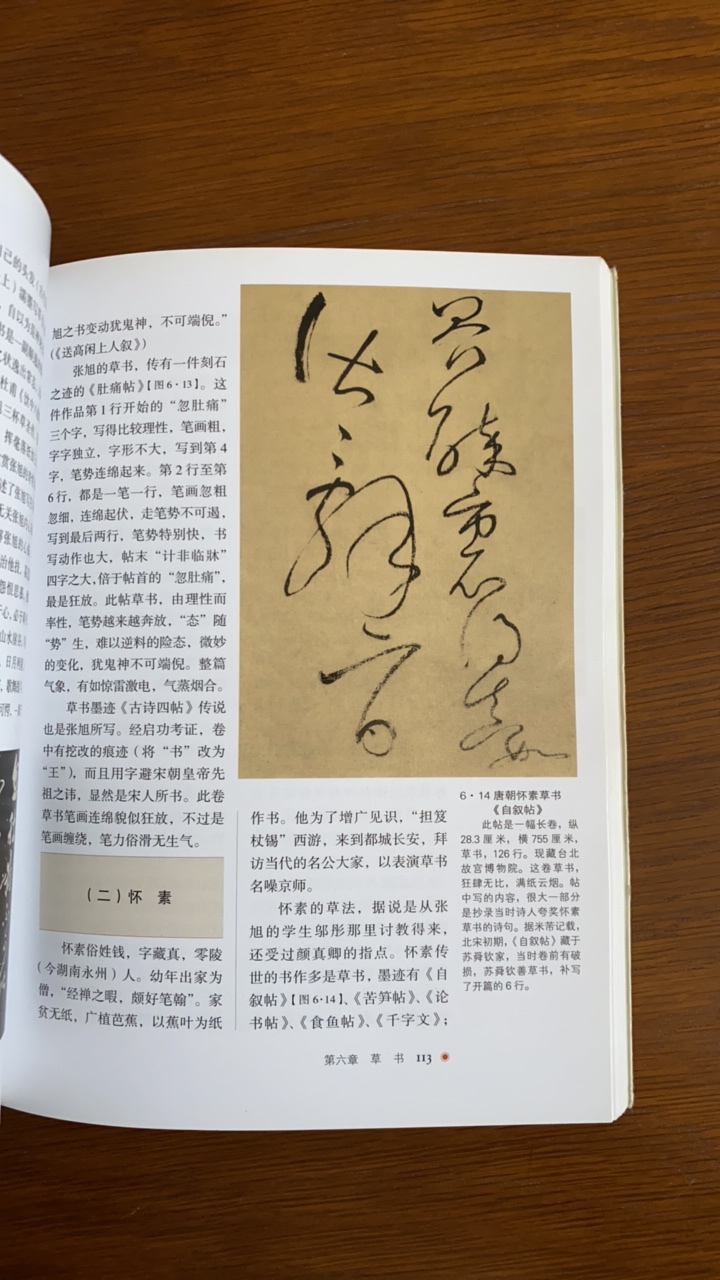 旭之书变动犹鬼神，不可端倪。”
（《送高闲上人叙》）
张旭的草书，传有一件刻石
之迹的《肚痛帖》【图6·13】。这
件作品第1行开始的“忽肚痛”
三个字，写得比较理性，笔画粗，
字字独立，字形不大，写到第4
字，笔势连绵起来。第2行至第
6行，都是一笔一行，笔画忽粗
忽细，连绵起伏，走笔势不可遏，
写到最后两行，笔势特别快，书
写动作也大，帖末“计非临牀”
四字之大，倍于帖首的“忽肚痛”，
最是狂放。此帖草书，由理性而
率性，笔势越来越奔放，“态”随
“势”生，难以逆料的险态，微妙
的变化，犹鬼神不可端倪。整篇
气象，有如惊雷激电，气蒸烟合。
草书墨迹《古诗四帖》传说
也是张旭所写。经启功考证，卷
中有挖改的痕迹（将“书”改为
“王”），而且用字避宋朝皇帝先
祖之讳，显然是宋人所书。此卷
草书笔画连绵貌似狂放，不过是
笔画缠绕，笔力俗滑无生气。
（二）怀 素
怀素俗姓钱，字藏真，零陵
（今湖南永州）人。幼年出家为
僧，“经禅之暇，颇好笔翰”。家
贫无纸，广植芭蕉，以蕉叶为纸
作书。他为了增广见识，“担笈
杖锡”西游，来到都城长安，拜
访当代的名公大家，以表演草书
名噪京师。
怀素的草法，据说是从张
旭的学生邬彤那里讨教得来，
还受过颜真卿的指点。怀素传
世的书作多是草书，墨迹有《自
叙帖》【图6·14】、《苦笋帖》、《论
书帖》、《食鱼帖》、《千字文》；
6·14 唐朝怀素草书
《自叙帖》
此帖是一幅长卷，纵
28.3厘米，横755厘米，
草书，126行。现藏台北
故宫博物院。这卷草书，
狂肆无比，满纸云烟。帖
中写的内容，很大一部分
是抄录当时诗人夸奖怀素
草书的诗句。据米芾记载，
北宋初期，《自叙帖》藏于
苏舜钦家，当时卷前有破
损，苏舜钦善草书，补写
了开篇的6行。
第六章 草 书 113